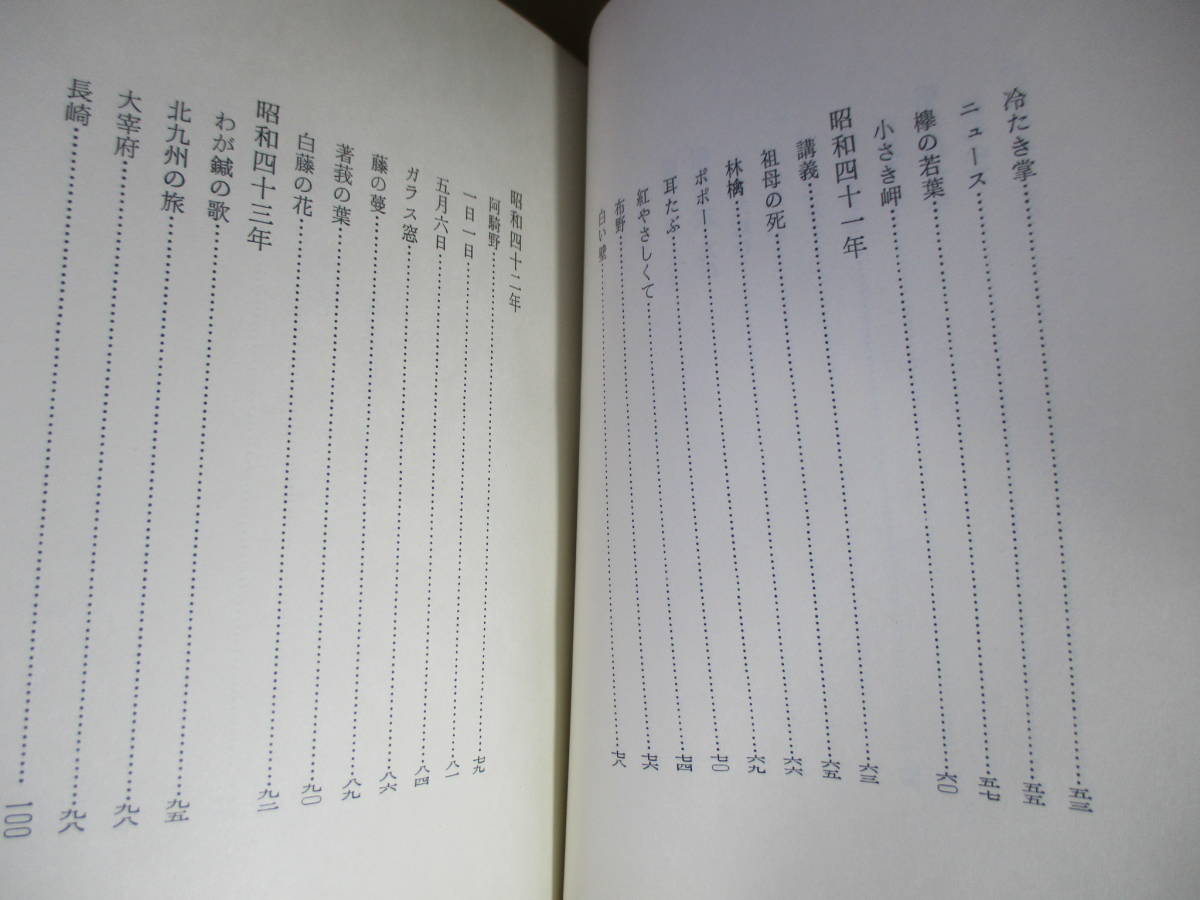 冷たき掌……五三
ニュース……五五
欅の若葉……五七
小さき岬……六〇
昭和四十一年
講義……六三
祖母の死……六五
林檎……六六
ポポー……六九
耳たぶ……七〇
紅やさしくて……七四
布野……七六
白い壁……七八
昭和四十二年
阿騎野……七九
一日一日……八一
五月六日……八四
ガラス窓……八六
藤の蔓……八九
著莪の葉……九〇
白藤の花……九二
昭和四十三年
わが鍼の歌……九五
北九州の旅……九八
大宰府……九八
長崎……一〇〇